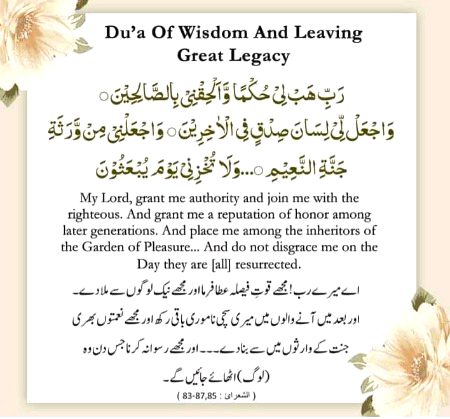 Du’a Of Wisdom And Leaving
Great Legacy
رَبِّ هَبْ لِیْ حُكْمًا وَّاَلْحِقْنِیْ بِالصَّالِحِیْنَ○
وَاجْعَلْ لِّیْ لِسَانَ صِدْقٍ فِی الْاٰخِرِیْنَ○ وَاجْعَلْنِیْ مِنْ وَّرَثَةِ
جَنَّةِ النَّعِیْمِ○...وَلَا تُخْزِنِیْ یَوْمَ یُبْعَثُوْنَ
My Lord, grant me authority and join me with the
righteous. And grant me a reputation of honor among
later generations. And place me among the inheritors of
the Garden of Pleasure... And do not disgrace me on the
Day they are [all] resurrected.
اے میرے رب! مجھے قوتِ فیصلہ عطا فرما اور مجھے نیک لوگوں سے ملا دے۔
اور بعد میں آنے والوں میں میری سچی ناموری باقی رکھ اور مجھے نعمتوں بھری
جنت کے وارثوں میں سے بنا دے۔۔۔ اور مجھے رسوا نہ کرنا جس دن وہ
(لوگ) اٹھائے جائیں گے۔
( الشعرائ: 83-87,85 )